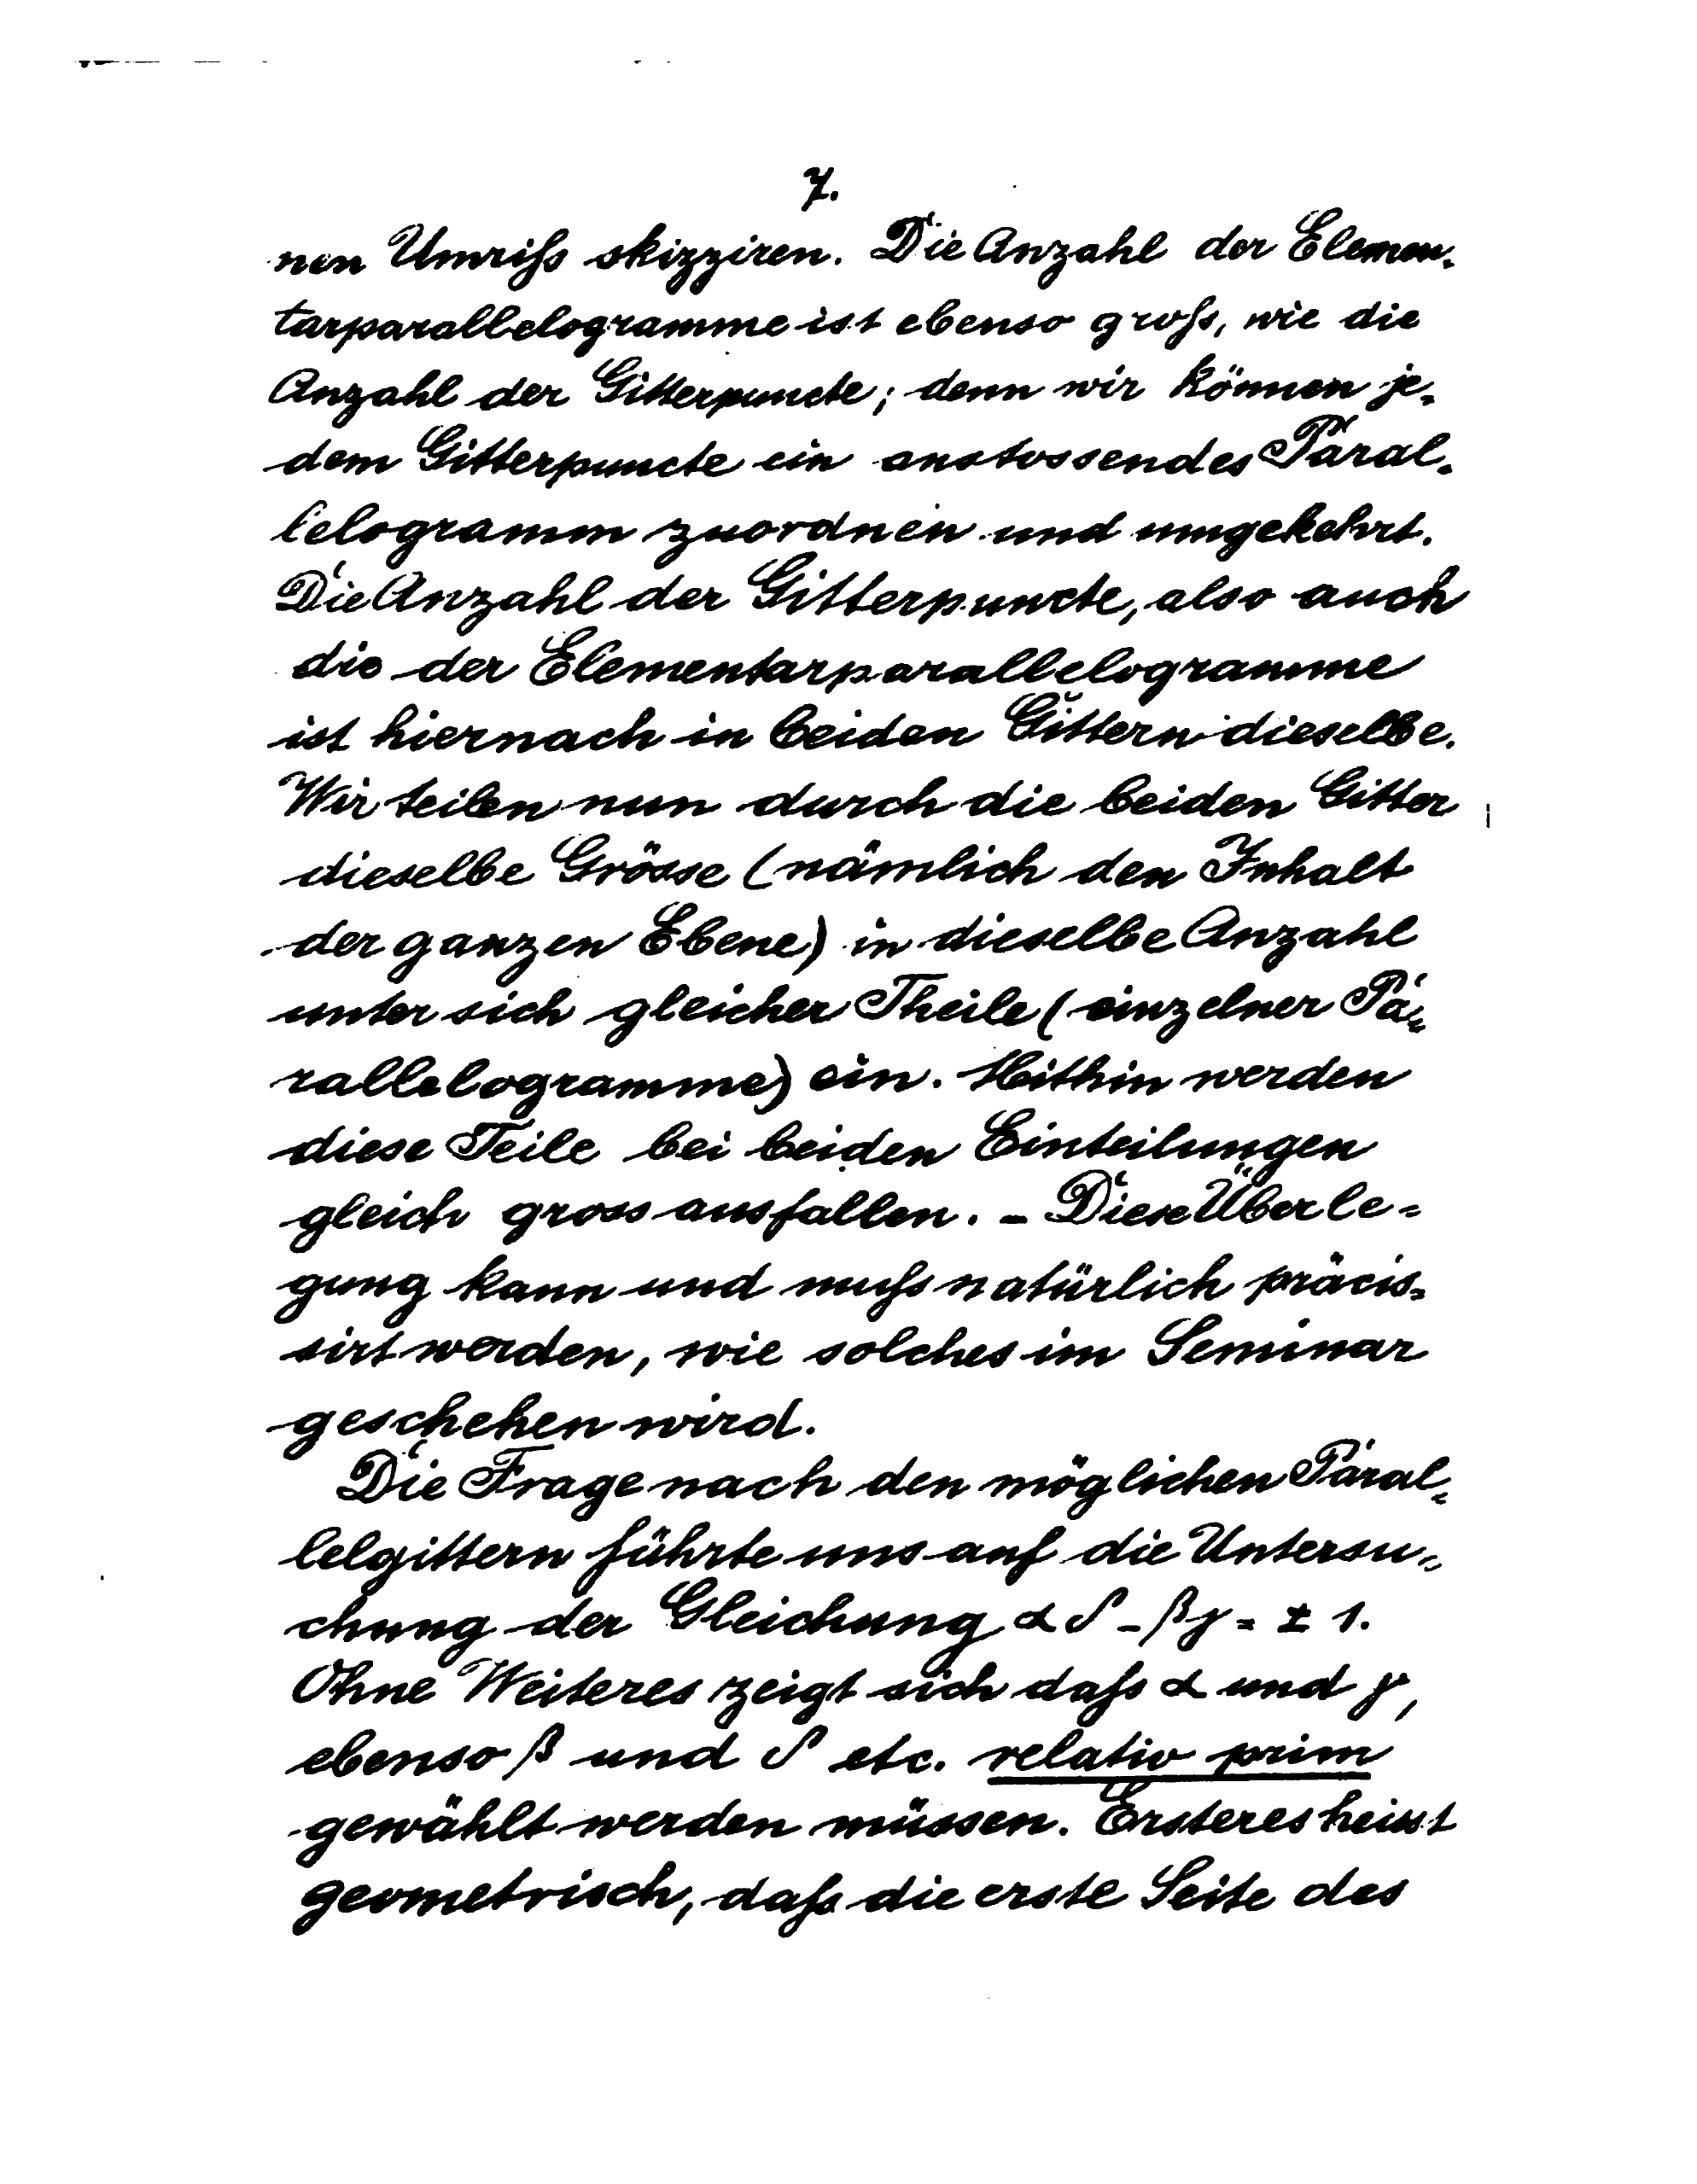 7.
nen Umriß skizziren. Die Anzahl der Elemen-
tarparallelogramme ist ebenso groß, wie die
Anzahl der Gitterpuncte; denn wir können je-
dem Gitterpuncte ein anstossendes Paral-
lelogramm zuordnen und umgekehrt.
Die Anzahl der Gitterpuncte, also auch
die der Elementarparallelogramme
ist hiernach in beiden Gittern dieselbe.
Wir teilen nun durch die beiden Gitter
dieselbe Grösse (nämlich den Inhalt
der ganzen Ebene) in dieselbe Anzahl
unter sich gleicher Theile (einzelner Pa-
rallelogramme) ein. Mithin werden
diese Teile bei beiden Einteilungen
gleich gross ausfallen. - Diese Überle-
gung kann und muß natürlich präcis-
sirt werden, wie solches im Seminar
geschehen wird.
Die Frage nach den möglichen Paral-
lelgittern führte uns auf die Untersu-
chung der Gleichung α δ - β γ = ± 1.
Ohne Weiteres zeigt sich daß α und γ,
ebenso β und δ etc. relativ prim
gewählt werden müssen. Ersteres heisst
geometrisch, daß die erste Seite des